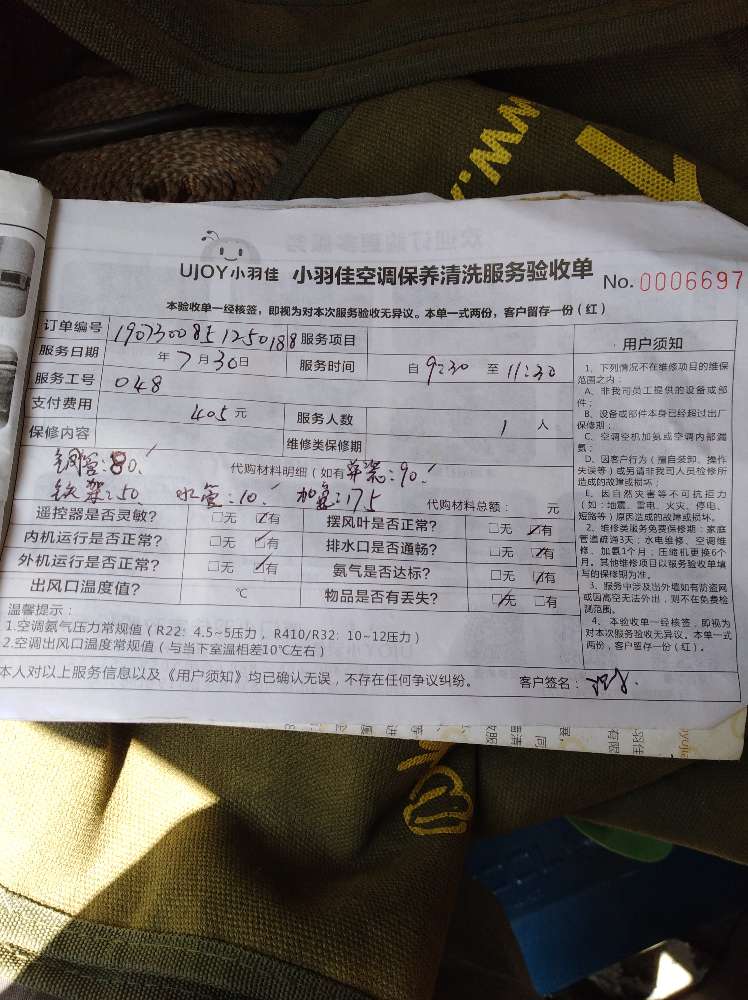 www.
UJOY小羽佳 小羽佳空调保养清洗服务验收单 No. 0006697
本验收单一经核签，即视为对本次服务验收无异议。本单一式两份，客户留存一份（红）
订单编号 1907300851250188 服务项目
服务日期 年7月30日 服务时间 自9:30 至11:30
服务工号 048
支付费用 405元 服务人数 1人
保修内容 维修类保修期
铜管:80. 代购材料明细（如有 弃装:90.
铁架:50 水管:10. 加氟:175 代购材料总额： 元
遥控器是否灵敏? □无 ☑有 摆风叶是否正常? □无 ☑有
内机运行是否正常? □无 ☑有 排水口是否通畅? □无 ☑有
外机运行是否正常? □无 ☑有 氨气是否达标? □无 ☑有
出风口温度值? ℃ 物品是否有丢失? ☑无 □有
温馨提示：
1.空调氨气压力常规值（R22: 4.5~5压力，R410/R32: 10~12压力）
2.空调出风口温度常规值（与当下室温相差10℃左右）
本人对以上服务信息以及《用户须知》均已确认无误，不存在任何争议纠纷。 客户签名：
用户须知
1、下列情况不在维修项目的维保
范围之内：
A、非我司员工提供的设备或部
件；
B、设备或部件本身已经超过出厂
保修期；
C、空调空机加氨或空调内部漏
氨；
D、因客户行为（擅自装卸、操作
失误等）或另请非我司人员检修所
造成的故障或损坏；
E、因自然灾害等不可抗拒力
（如：地震、雷电、火灾、停电、
短路等）原因造成的故障或损坏。
2、维修类服务免费保修期：家庭
管道疏通3天；水电维修、空调维
修、加氨1个月；压缩机更换6个
月。其他维修项目以服务验收单填
写的保修期为准。
3、服务中涉及出外墙如有防盗网
或因高空无法外出，则不在免费检
测范围。
4、本验收单一经核签，即视为
对本次服务验收无异议。本单一式
两份，客户留存一份（红）。